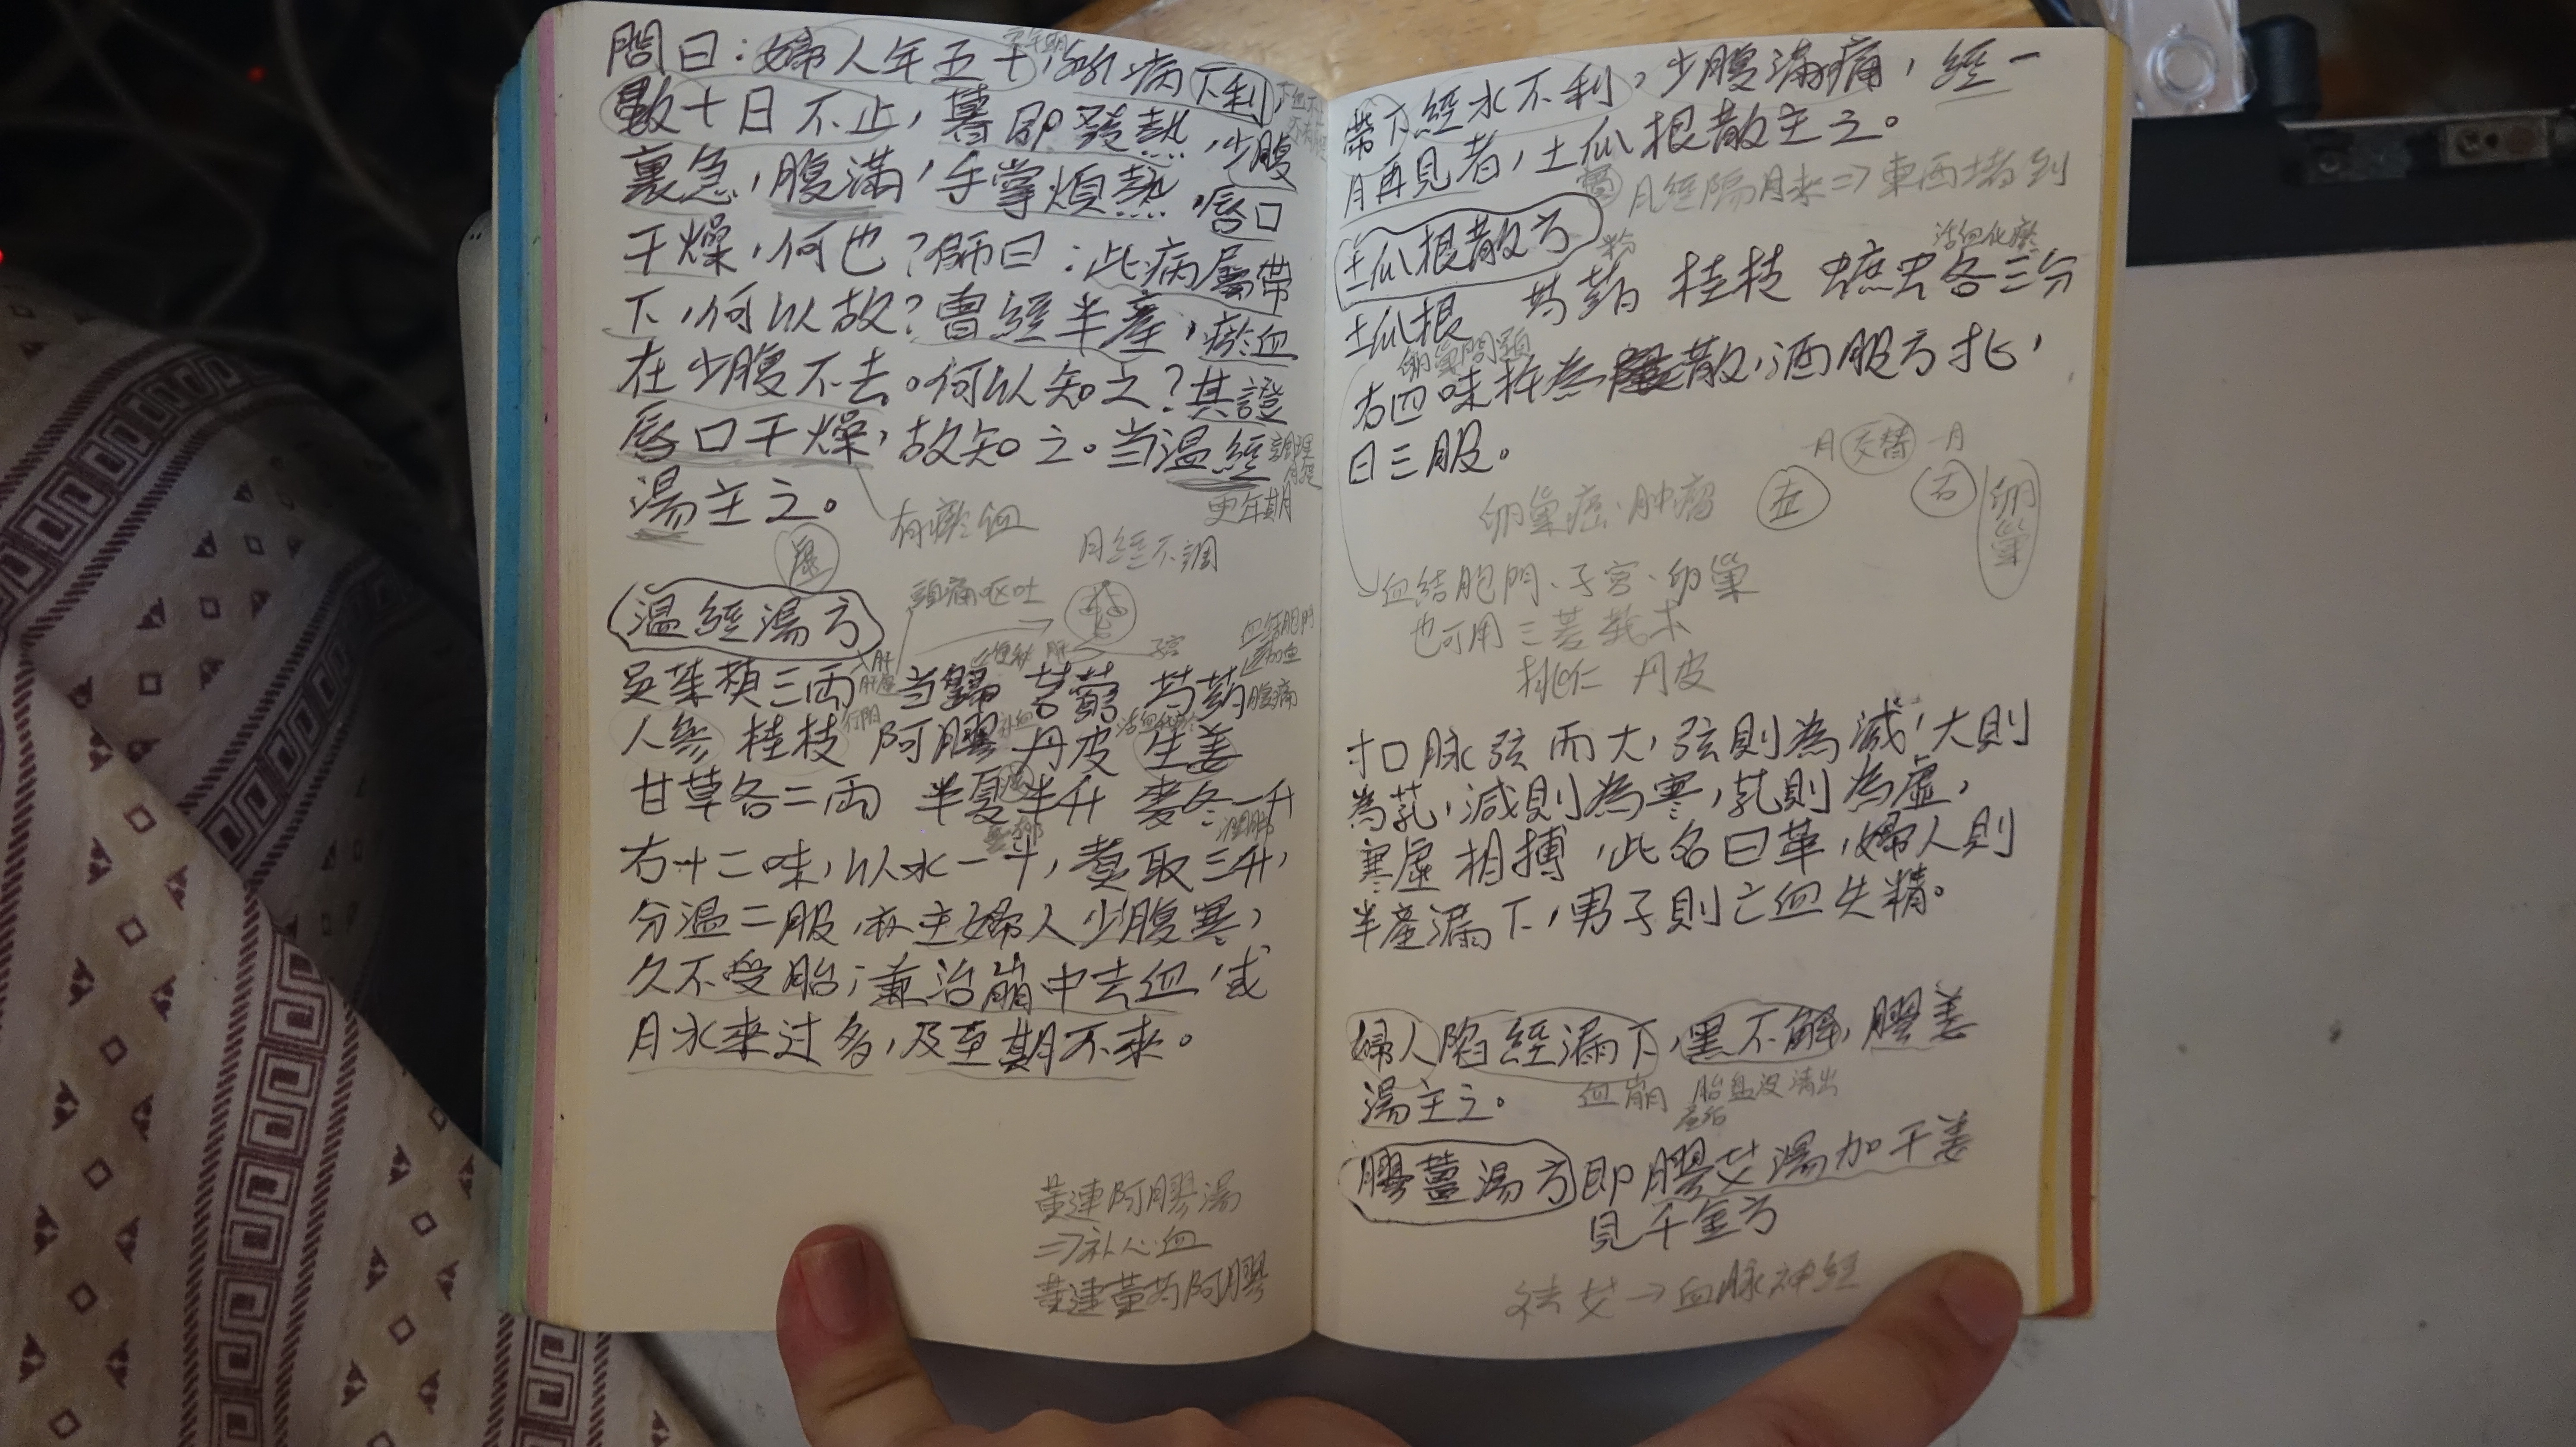 問曰：婦人年五十，所病下利，
數十日不止，暮即發熱，少腹
裏急，腹滿，手掌煩熱，唇口
干燥，何也？師曰：此病屬帶
下，何以故？曾經半產，瘀血
在少腹不去。何以知之？其證
唇口干燥，故知之。当温經
湯主之。
有瘀血
更年期
月經不調
頭痛嘔吐
温經湯方
吴茱萸三両 当歸 芎藭 芍藥
腹痛
人參 桂枝 阿膠 丹皮 生姜
甘草各二両 半夏半升 麥冬一升
右十二味，以水一斗，煮取三升，
分温二服，亦主婦人少腹寒，
久不受胎；兼治崩中去血，或
月水来过多，及至期不來。
黃連阿膠湯
⇒补心血
黃連黃芍阿膠
帶下經水不利，少腹滿痛，經一
月再見者，土瓜根散主之。
月經隔月来⇒東西堵到
土瓜根散方
活血化瘀
土瓜根 芍藥 桂枝 䗪虫各三分
卵巢問題
右四味杵為散，酒服方扎，
日三服。
月 交替 月
左 右 卵巢
卵巢癌、肿瘤
血結胞門、子宮、卵巢
也可用三菱莪术
桃仁 丹皮
寸口脉弦而大，弦則為減，大則
為芤，減則為寒，芤則為虛，
寒虛相搏，此名曰革，婦人則
半產漏下，男子則亡血失精。
婦人陷經漏下，黑不解，膠姜
湯主之。
血崩 胎盘没清出
產后
膠薑湯方 即膠艾湯加干姜
見千金方
祛艾→血脉神經